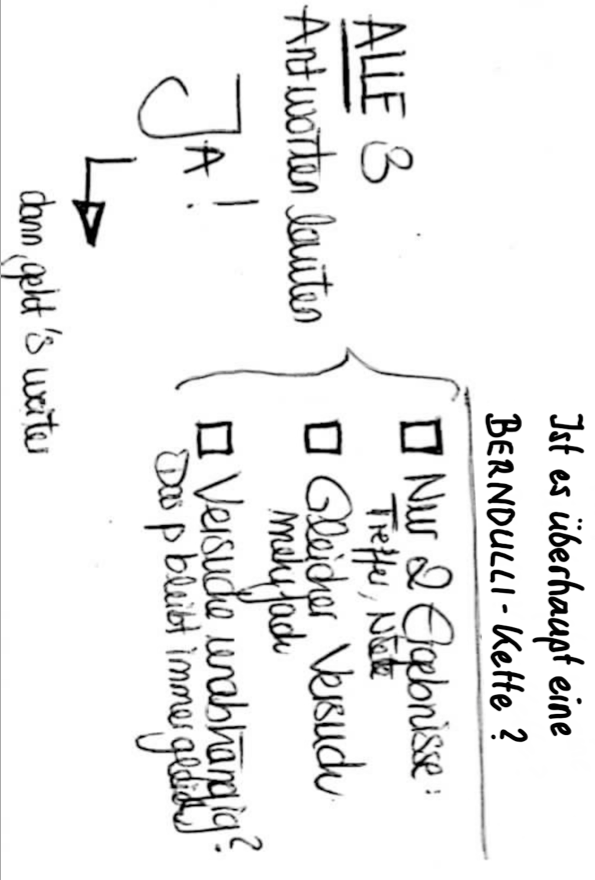 Ist es überhaupt eine
BERNOULLI-Kette?
Nur 2 Ergebnisse:
Treffer, Niete
Gleicher Versuch
mehrfach
Versuche unabhängig?
Das p bleibt immer gleich?
ALLE 3
Antworten lauten
JA!
dann geht's weiter